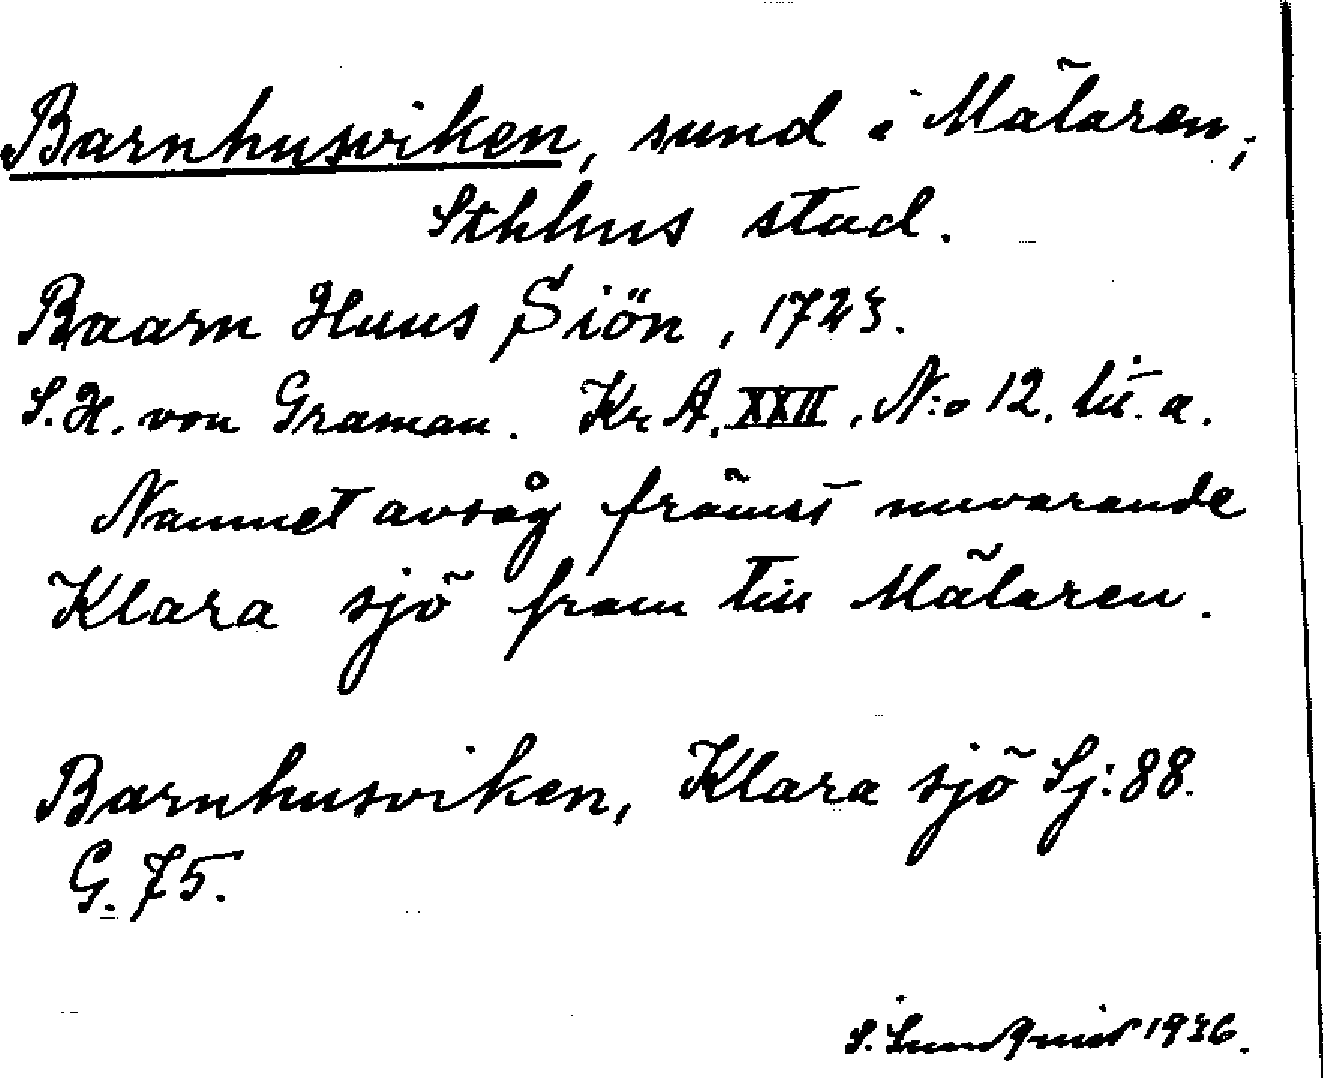 Barnhusviken, sund i Mälaren,
Sthlms stad.
Baarn Huus Siön, 1723.
S. H. von Graman. Kr A. XXII, N:o 12. lit. a.
Namnet avsåg främst nuvarande
Klara sjö fram till Mälaren.
Barnhusviken, Klara sjö Sj: 88.
G. 75.
S. Lundquist 1936.